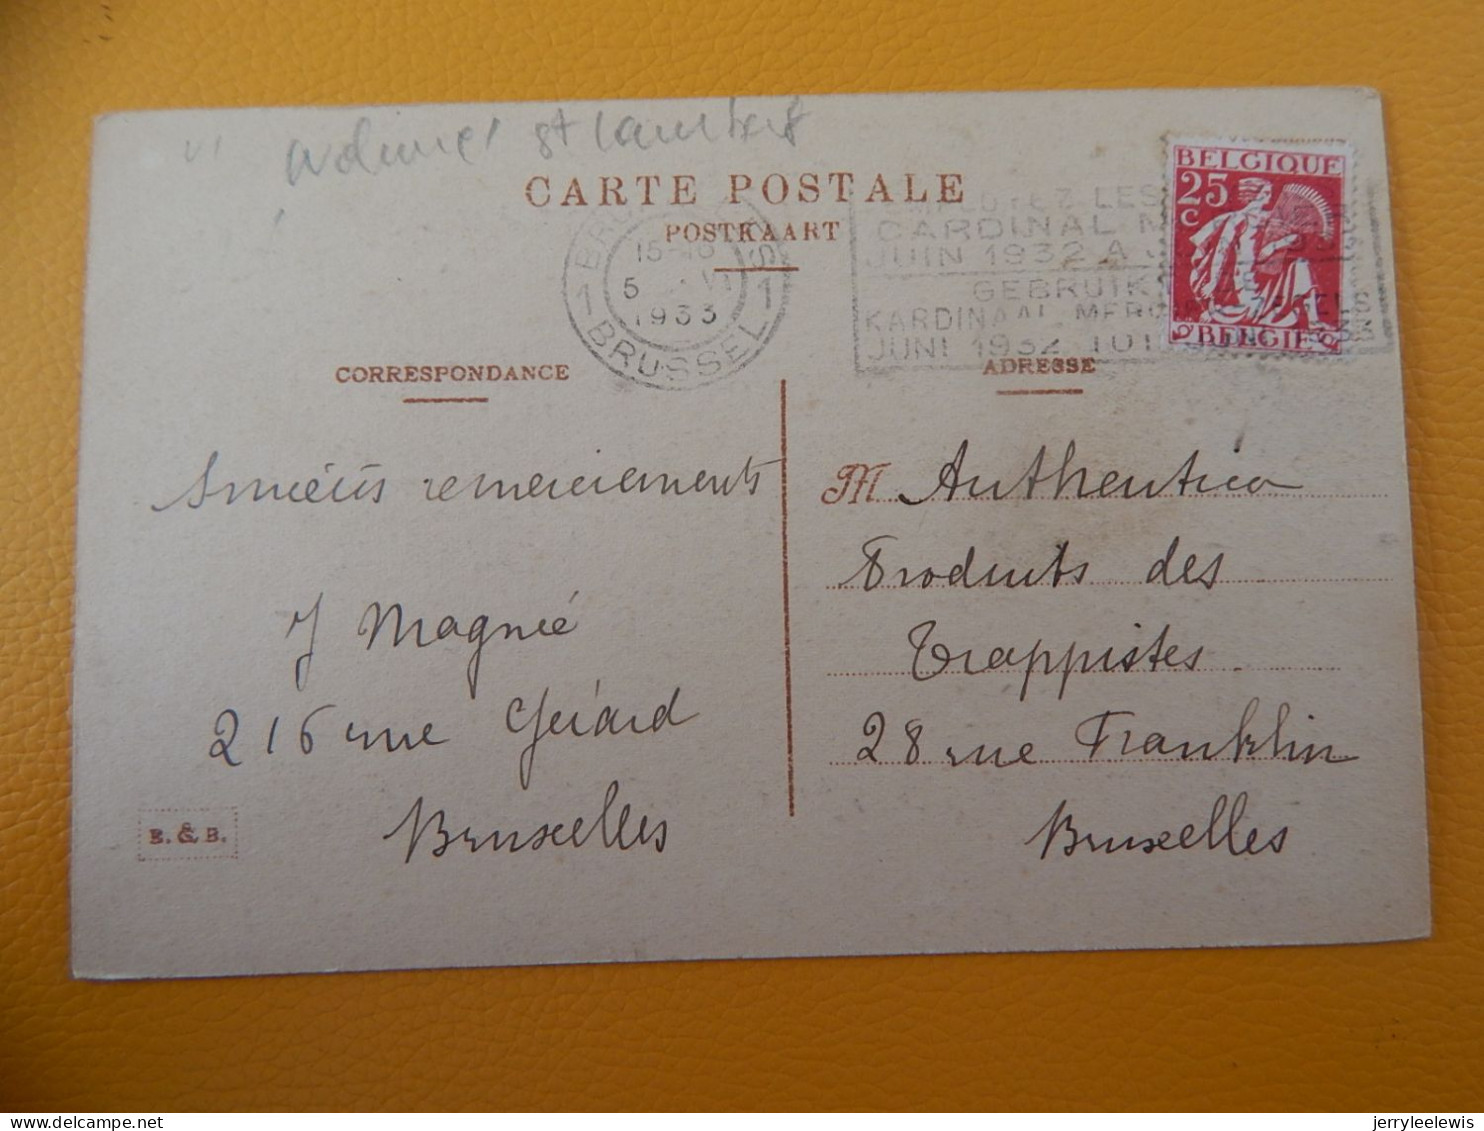 st Lambert
CARTE POSTALE
POSTKAART
15-16
5 VI
1933
1 BRUSSEL 1
LES
CARDINAL M
JUIN 1932 A
GEBRUIK
KARDINAAL MERC
JUNI 1932 TOT
BELGIQUE
25
C
BELGIË
CORRESPONDANCE
ADRESSE
Sincères remerciements
J Magnée
216 rue Gérard
Bruxelles
M Authentica
Produits des
Trappistes
28 rue Franklin
Bruxelles
B. & B.
jerryleelewis